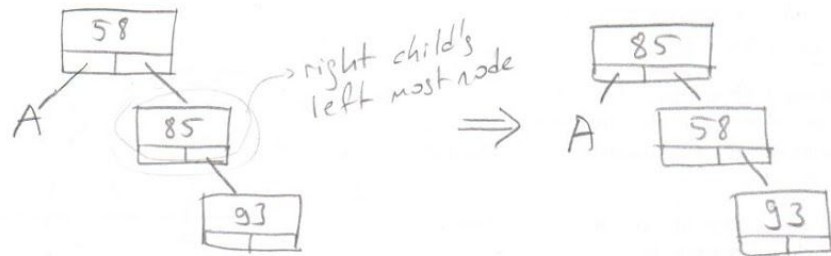 58
right child's
left most node
A
85
93
⇒
85
A
58
93